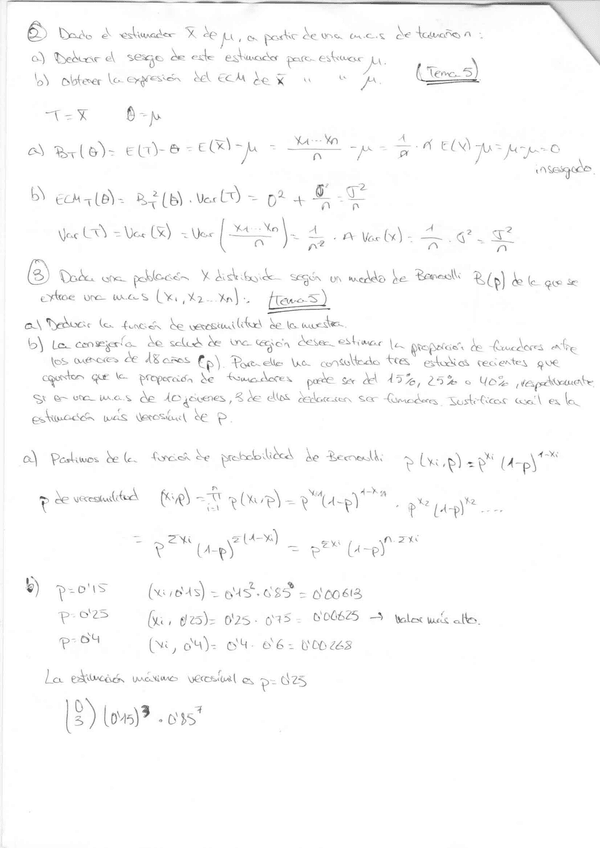 ② Dado el estimador x̄ de μ, a partir de una m.a.s de tamaño n:
a) Deducir el sesgo de este estimador para estimar μ.
b) Obtener la expresión del ECM de x̄ " " μ. (Tema 5)
T = x̄ θ = μ
a) B_T(θ) = E(T) - θ = E(x̄) - μ = x₁...xₙ/n - μ = 1/n · n E(x) - μ = μ - μ = 0
insesgado.
b) ECM_T(θ) = B_T²(θ) · Var(T) = 0² + σ²/n = σ²/n
Var(T) = Var(x̄) = Var(x₁...xₙ/n) = 1/n² · n Var(x) = 1/n · σ² = σ²/n
③ Dada una población X distribuida según un modelo de Bernoulli B(p) de la que se
extrae una m.a.s (x₁, x₂...xₙ): (Tema 5)
a) Deducir la función de verosimilitud de la muestra.
b) La consejería de salud de una región desea estimar la proporción de fumadores entre
los menores de 18 años (p). Para ello ha consultado tres estudios recientes que
apuntan que la proporción de fumadores puede ser del 15%, 25% o 40%, respectivamente
Si en una m.a.s de 10 jóvenes, 3 de ellos declararon ser fumadores. Justificar cuál es la
estimación más verosímil de p.
a) Partimos de la función de probabilidad de Bernoulli p(xi, p) = p^xi (1-p)^1-xi
de verosimilitud (xi, p) = π i=1 p(xi, p) = p^x₁ (1-p)^1-x₁ · p^x₂ (1-p)^x₂ ....
= p^Σxi (1-p)^Σ(1-xi) = p^Σxi (1-p)^n-Σxi
b) p = 0'15 (xi, 0'15) = 0'15 · 0'85 = 0'00613
p = 0'25 (xi, 0'25) = 0'25 · 0'75 = 0'00625 → valor más alto.
p = 0'4 (xi, 0'4) = 0'4 · 0'6 = 0'00268
La estimación máximo verosímil es p = 0'25
(0 3) (0'15)³ · 0'85⁷